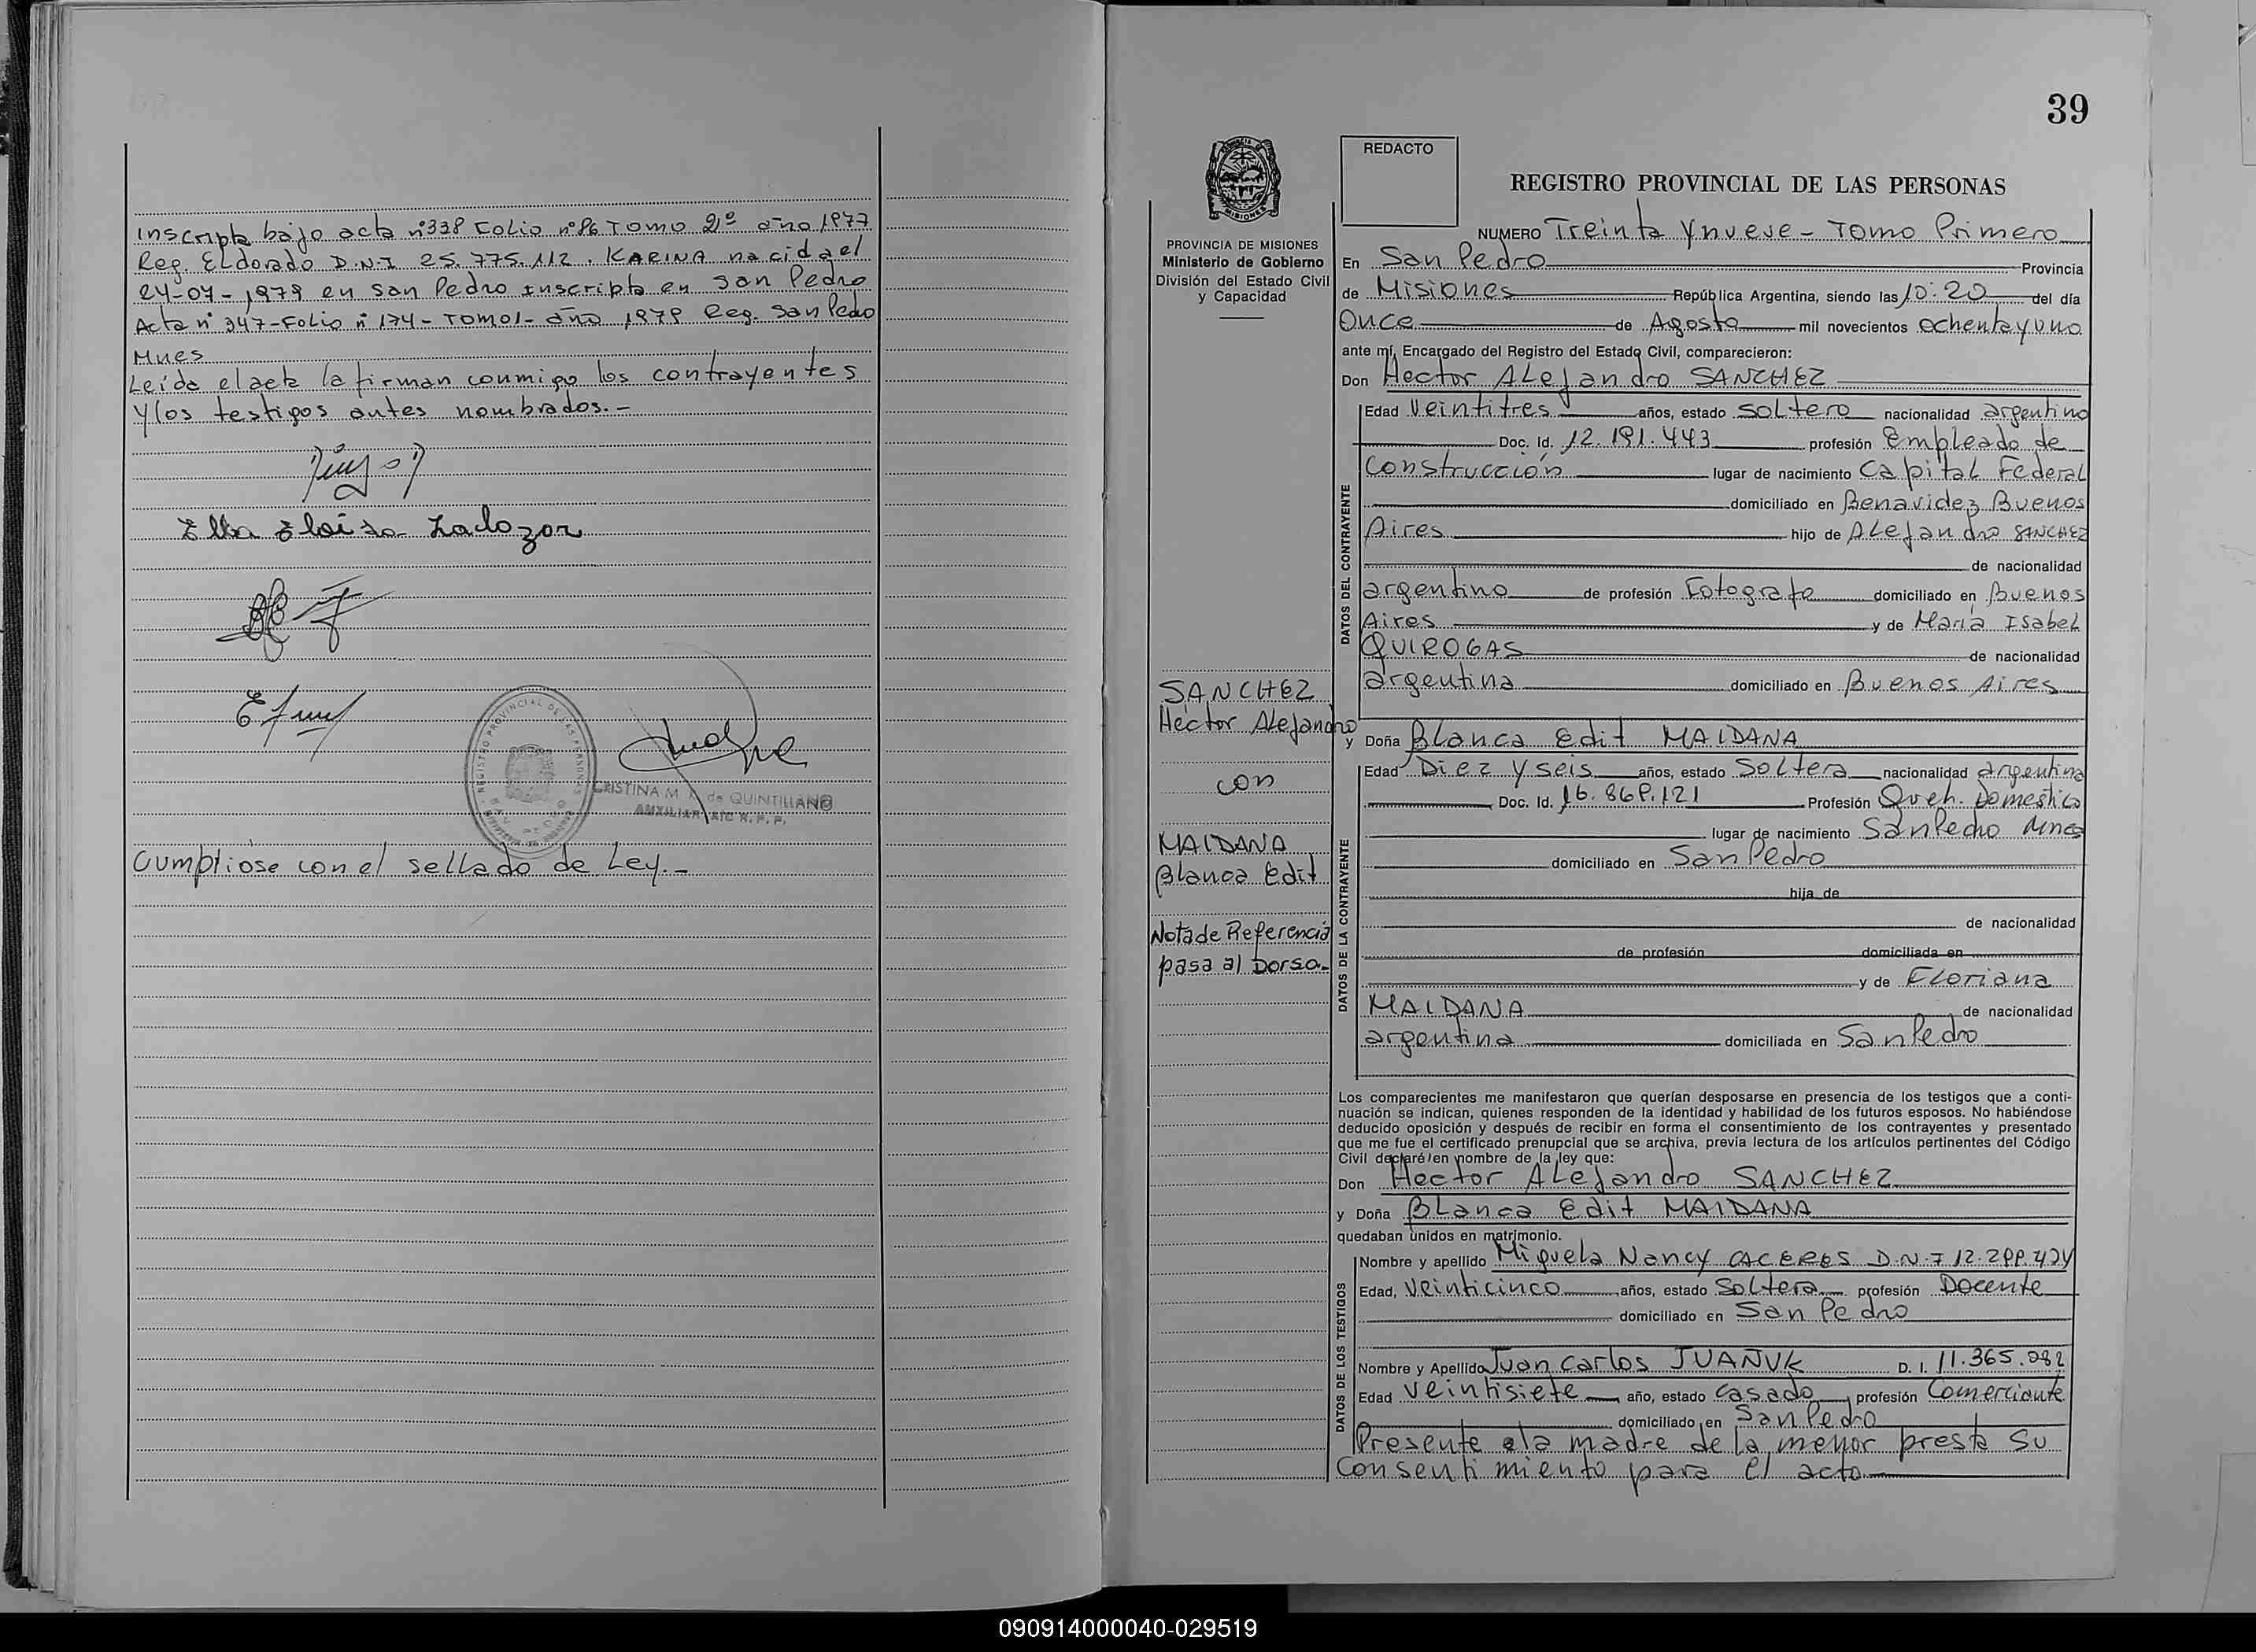 inscripta bajo acta nº338 Folio nº86 Tomo 2º año 1977
Reg. ELdorado D.N.I 25.775.112. KARINA nacida el
24-07-1979 en san Pedro inscripta en san Pedro
Acta nº 347-Folio nº 174-Tomo1-año 1979 Reg. San Pedro
Mnes
Leída el acta la firman conmigo los contrayentes
y los testigos antes nombrados.-
REGISTRO PROVINCIAL DE LAS PERSONAS
CRISTINA M. de QUINTILLANO
AUXILIAR R. P. P.
Cumpliose con el sellado de Ley.-
39
REDACTO
REGISTRO PROVINCIAL DE LAS PERSONAS
PROVINCIA DE MISIONES
Ministerio de Gobierno
División del Estado Civil
y Capacidad
SANCHEZ
Hector Alejandro
con
MAIDANA
Blanca Edit
Nota de Referencia
pasa al Dorso.-
NUMERO Treinta y nueve - Tomo Primero
En San Pedro Provincia
de Misiones República Argentina, siendo las 10:20 del día
Once de Agosto mil novecientos ochenta y uno
ante mí, Encargado del Registro del Estado Civil, comparecieron:
Don Hector ALejandro SANCHEZ
DATOS DEL CONTRAYENTE
Edad Veintitres años, estado soltero nacionalidad argentino
Doc. Id. 12.191.443 profesión Empleado de
Construcción lugar de nacimiento Capital Federal
domiciliado en Benavidez Buenos
Aires hijo de ALejandro SANCHEZ
de nacionalidad
argentino de profesión Fotografo domiciliado en Buenos
Aires y de María Isabel
QUIROGAS de nacionalidad
argentina domiciliado en Buenos Aires
y Doña Blanca Edit MAIDANA
DATOS DE LA CONTRAYENTE
Edad Diez y seis años, estado Soltera nacionalidad argentina
Doc. Id. 16.869.121 Profesión Queh. Domestico
lugar de nacimiento San Pedro Mnes
domiciliado en San Pedro
hija de
de nacionalidad
de profesión domiciliada en
y de FLoriana
MAIDANA de nacionalidad
argentina domiciliada en San Pedro
Los comparecientes me manifestaron que querían desposarse en presencia de los testigos que a conti-
nuación se indican, quienes responden de la identidad y habilidad de los futuros esposos. No habiéndose
deducido oposición y después de recibir en forma el consentimiento de los contrayentes y presentado
que me fue el certificado prenupcial que se archiva, previa lectura de los artículos pertinentes del Código
Civil declaré en nombre de la ley que:
Don Hector ALejandro SANCHEZ
y Doña Blanca Edit MAIDANA
quedaban unidos en matrimonio.
DATOS DE LOS TESTIGOS
Nombre y apellido Miguela Nancy CACERES D.N.I 12.299.424
Edad, Veinticinco años, estado Soltera profesión Docente
domiciliado en San Pedro
Nombre y Apellido Juan Carlos JUAÑUK D. I. 11.365.282
Edad Veintisiete año, estado casado profesión Comerciante
domiciliado en San Pedro
Presente la madre de la menor presta su
Consentimiento para el acto
090914000040-029519